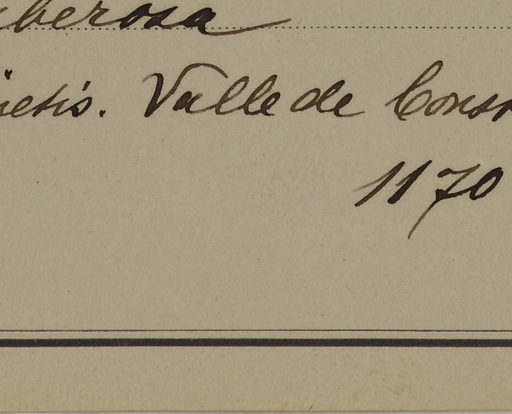 uberosa
ietis. Valle de Const
1170